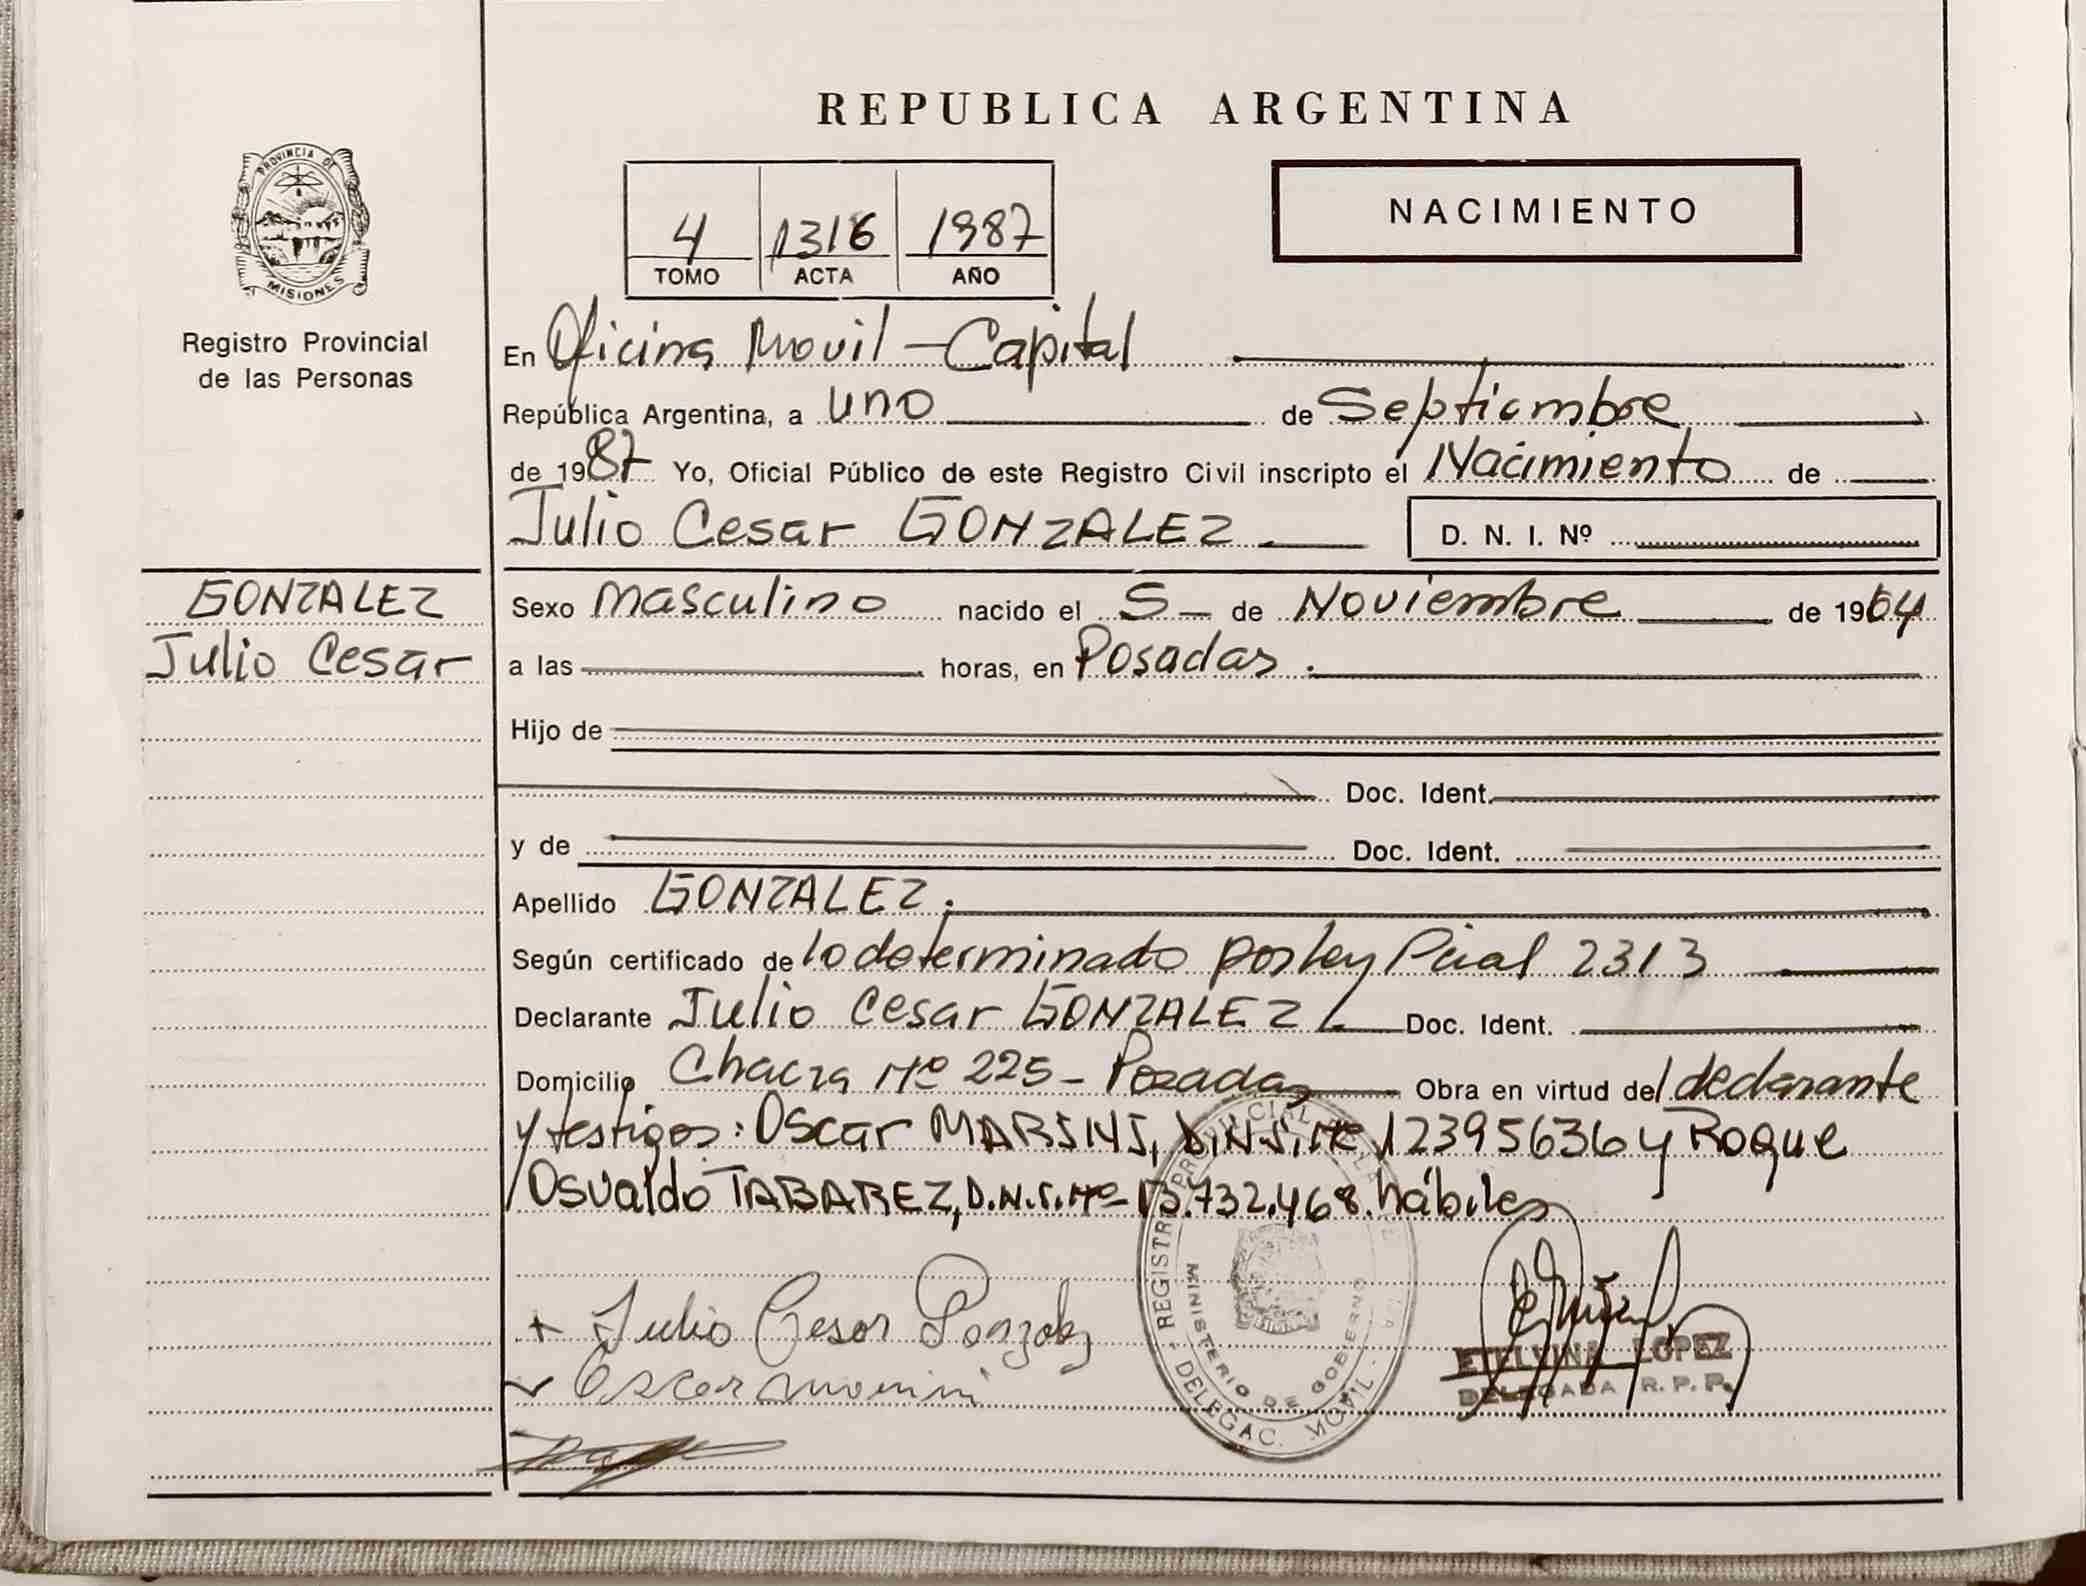 REPUBLICA ARGENTINA
PROVINCIA DE
MISIONES
Registro Provincial
de las Personas
4 1316 1987
TOMO ACTA AÑO
NACIMIENTO
En Oficina Movil - Capital
República Argentina, a uno de Septiembre
de 1987 Yo, Oficial Público de este Registro Civil inscripto el Nacimiento de
Julio Cesar GONZALEZ.
D. N. I. Nº
GONZALEZ
Julio Cesar
Sexo masculino nacido el 5 - de Noviembre de 1964
a las horas, en Posadas.
Hijo de
Doc. Ident.
y de Doc. Ident.
Apellido GONZALEZ.
Según certificado de lo determinado por ley Pcial 2313
Declarante Julio Cesar GONZALEZ Doc. Ident.
Domicilio Chacra Nº 225 - Posadas Obra en virtud del declarante
y testigos: Oscar MARSINI, D.N.I. Nº 12395636 y Roque
Osvaldo TABAREZ, D.N.I. Nº 13.732.468. hábiles
Julio Cesar Gonzalez
Oscar
REGISTRO PROVINCIAL DE LA
MINISTERIO DE GOBIERNO
DELEGAC. MOVIL
ETELVINA LOPEZ
DELEGADA R. P. P.